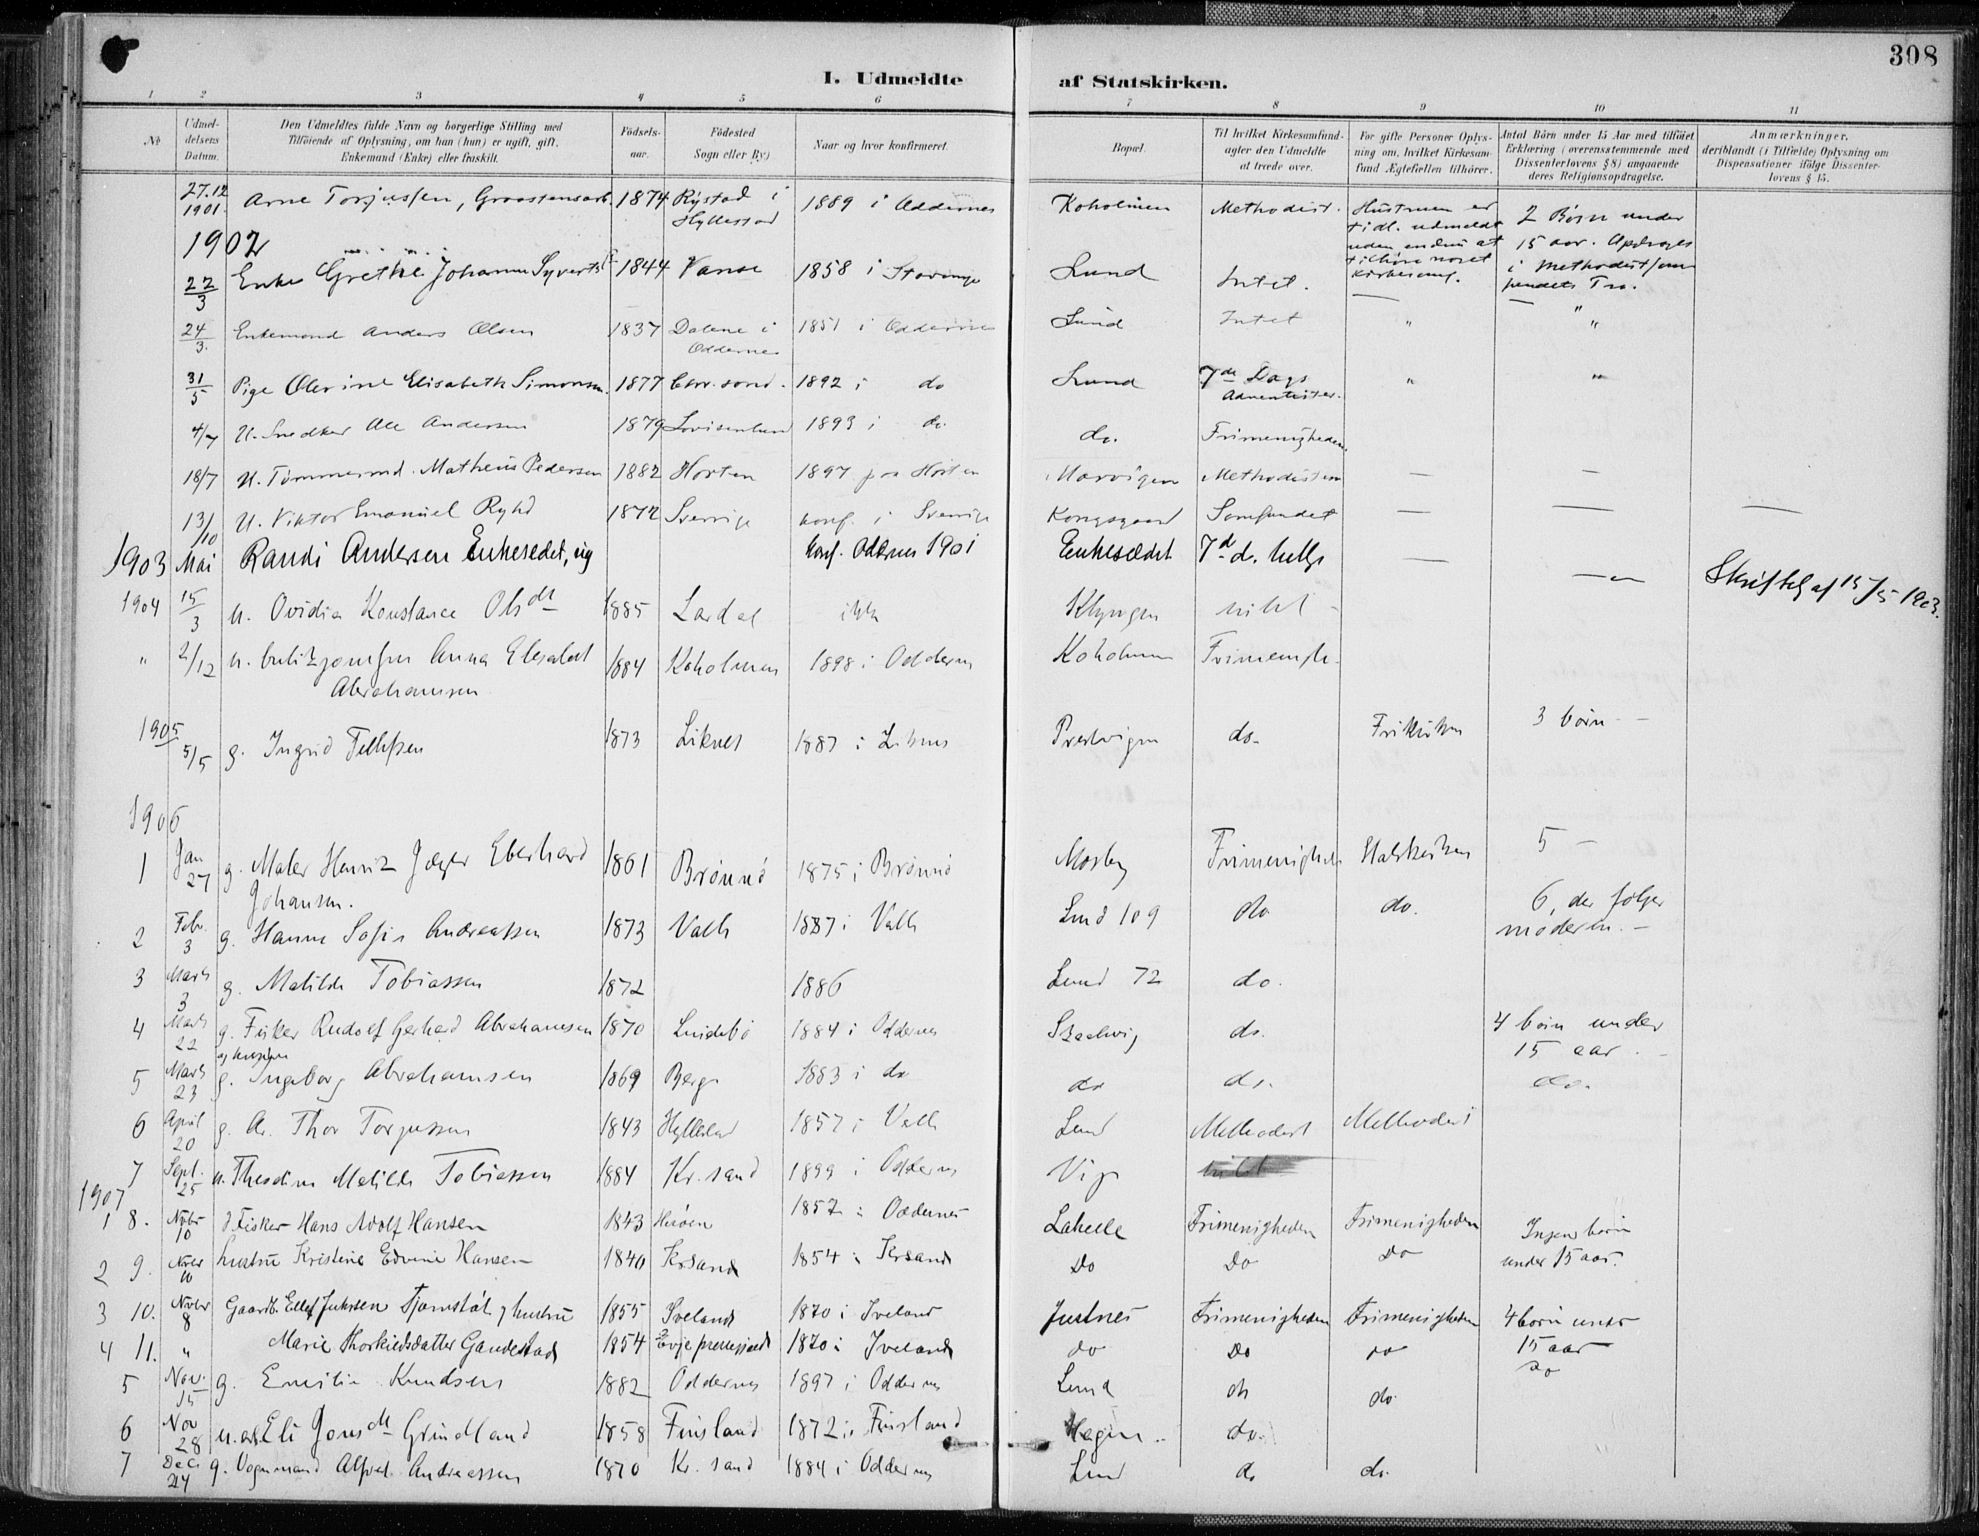 308
I. Udmeldte af Statskirken.
1 2 3 4 5 6 7 8 9 10 11
No
Udmeldelsens Datum.
Den Udmeldtes fulde Navn og borgerlige Stilling med
Tilføiende af Oplysning, om han (hun) er ugift, gift,
Enkemand (Enke) eller fraskilt.
Fødselsaar.
Fødested
Sogn eller By)
Naar og hvor konfirmeret.
Bopæl.
Til hvilket Kirkesamfund
agter den Udmeldte
at træde over.
For gifte Personer Oplysning
om, hvilket Kirkesamfund
Ægtefællen tilhører.
Antal Børn under 15 Aar med tilføiet
Erklæring (overensstemmende med
Dissenterlovens § 8) angaaende
deres Religionsopdragelse.
Anmærkninger,
deriblandt (i Tilfælde) Oplysning om
Dispensationer ifølge Dissenterlovens § 15.
27.12 1901. Arne Torjussen, 1874 Rystad i Hyllestad 1889 i Oddernes Koholmen Methodist. Hustruen er tidl. udmeldt uden endnu at tilhøre noget Kirkesamf. 2 Børn under 15 aar. Opdrages i Methodistsam
1902
22/3 Enke Grethe Johanne Syverts 1844 Vanse 1858 i Lund Intet.
24/3. Enkemand Anders Olsen 1837 Dalene i Oddernes 1851 i Oddernes Lund Intet " "
31/5 Pige Olevine Elisabeth Simonsen. 1877 1892 i do Lund 7de Dags Adventister. " "
4/7 U. Snedker Ole Andersen 1879 Lovisenlund 1893 i do do. Frimenigheden.
18/7 U. Tømmermd. Matheus Pedersen 1882 Horten 1897 paa Horten Marvigen Methodisten — —
13/10 U. Viktor Emanuel 1872 Sverrige konf. i Sverrige Kongsgaard Samfundet — — —
1903 Mai Randi Andersen Enkesedet, ug konf. Oddernes 1901 Enkesædet 7d d. — — af 15/5 1903.
1904 15/3 u. Ovidia Konstance Olsdt 1885 Lardal ikke
" 2/12 u. Anna Elisabet Abrahamsen 1884 Koholmen 1898 i Oddernes Koholmen Frimenigh.
1905 5/5 g. Ingrid Tellefsen 1873 Liknes 1887 i Liknes Prestvigen do. Frikirken 3 børn
1906
1 Jan 27 g. Maler Henrik Jæger Eberhard Johansen. 1861 Brønnø 1875 i Brønnø Mosby Frimenigheden Statskirken 5 —
2 Febr. 3 g. Hanne Sofie Andreassen 1873 Valle 1887 i Valle Lund 109 do do. 6, der følger moderen. —
3 Marts 3 g. Matilde Tobiassen 1872 1886 Lund 72 do.
4 Marts 22 g. Fisker Rudolf Gerhard Abrahamsen 1870 Lindebø 1884 i Oddernes do. 4 børn under 15 aar. —
5 Marts 23 g. Ingeborg Abrahamsen 1869 Berge 1883 i do do do. do.
6 April 20 g. Thor Torjussen 1843 Hyllestad 1857 i Valle Lund Methodist Methodist
7 Sept. 25 u. Matilde Tobiassen 1884 Kr. sand 1899 i Oddernes
1907
1 8. Novbr 10 Fisker Hans Adolf Hansen 1843 1857 i Oddernes Lahelle Frimenigheden Frimenigheden Ingen børn under 15 aar.
2 9. Novbr 10 hustru Kristine Edvine Hansen 1840 Krsand 1854 i Krsand Do Do Do
3 10. Novbr 8 Gaardb. Ellef Tjomstøl og hustru 1855 Iveland 1870 i Iveland Justnes Frimenigheden Frimenigheden 4 børn under 15 aar
4 11. " Marie Thorkildsdatter 1854 Evje 1870 i Iveland do Do do do
5 Nov. 15 g. Emilie Knudsen 1882 Oddernes 1897 i Oddernes Lund do do
6 Nov 28 Eli Grindland 1858 Finsland 1872 i Finsland Hagen do.
7 Dec 24 g. Vognmand Alfred Andreassen 1870 Kr. sand 1884 i Oddernes Lund do do.